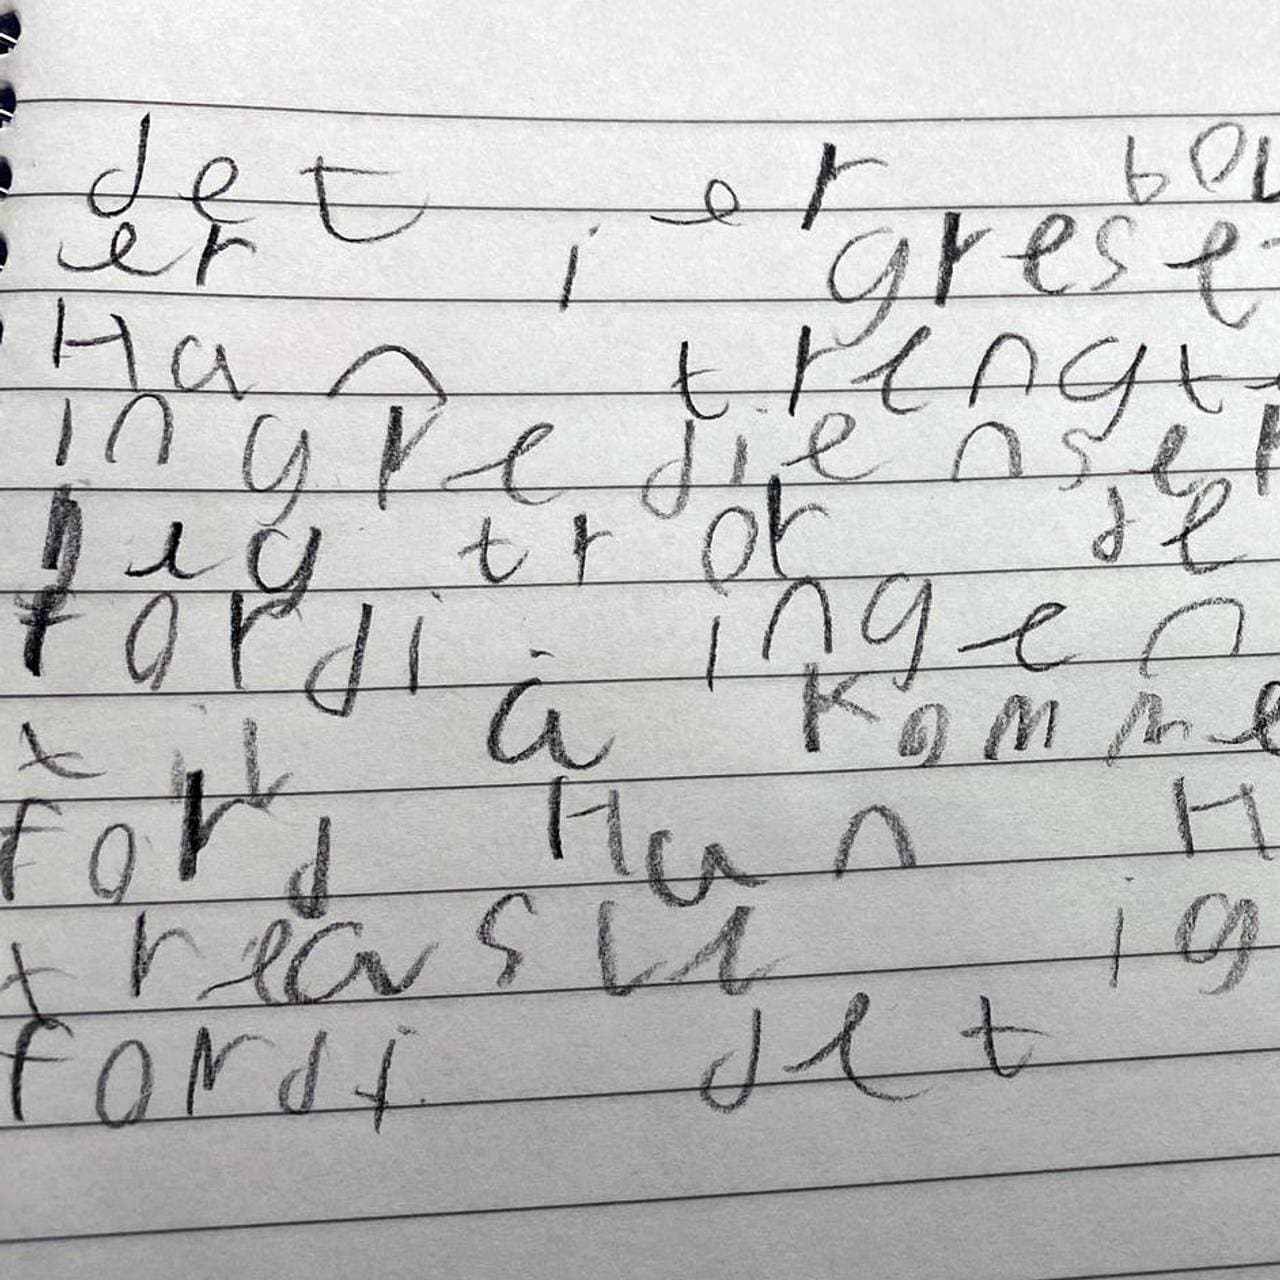 det er bou
er i greset
Han trengte
ingredienser
jeg tror de
fordi ingen
til å komme
ford Han H
treasle ig
fordi det